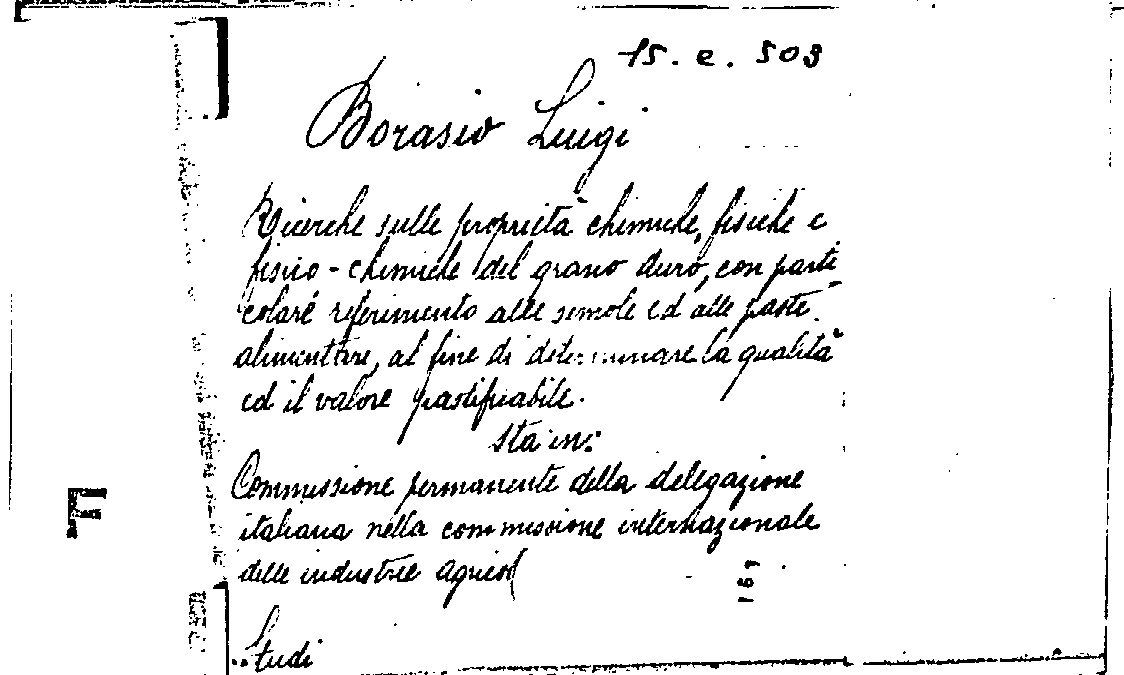 15. e. 503
Borasio Luigi
Ricerche sulle proprietà chimiche, fisiche e
fisico-chimiche del grano duro, con parti
colare referimento alle semole ed alle paste
alimentare, al fine di determinare la qualità
ed il valore pastificabile.
Sta in:
Commissione permanente della delegazione
italiana nella commissione internazionale
F
delle industrie agricol
169
Studi